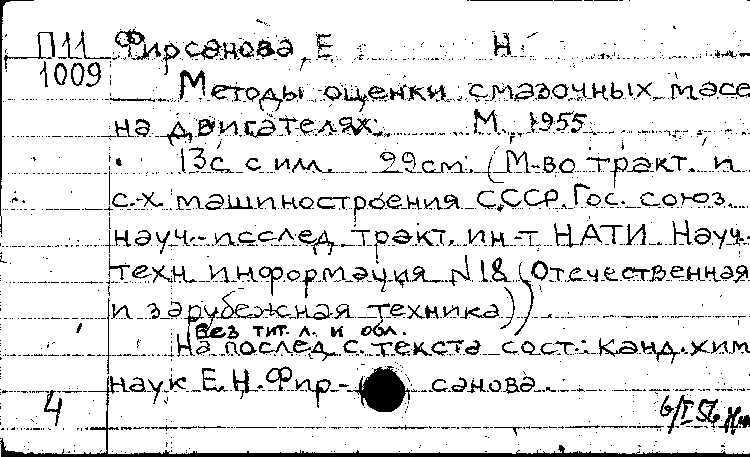 П11 Фирсанова, Е Н.
1009
Методы оценки смазочных масе
на двигателях. М, 1955
13с. с ил. 29см. (М-во тракт. и
с.-х. машиностроения СССР. Гос. союз.
науч.-исслед. тракт. ин-т НАТИ. Науч.-
техн. информация N18 (Отечественная
и зарубежная техника)).
Без тит. л. и обл.
На послед с. текста сост.: канд. хим
наук Е.Н.Фир- санова.
4
6/I 56